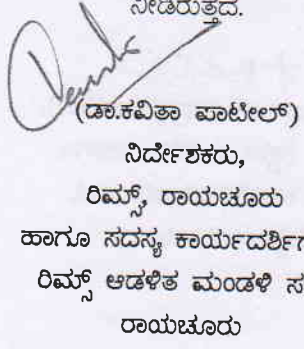 ನೀಡಿರುತ್ತದೆ.
(ಡಾ.ಕವಿತಾ ಪಾಟೀಲ್)
ನಿರ್ದೇಶಕರು,
ರಿಮ್ಸ್, ರಾಯಚೂರು
ಹಾಗೂ ಸದಸ್ಯ
ರಿಮ್ಸ್ ಆಡಳಿತ ಮಂಡಳಿ
ರಾಯಚೂರು